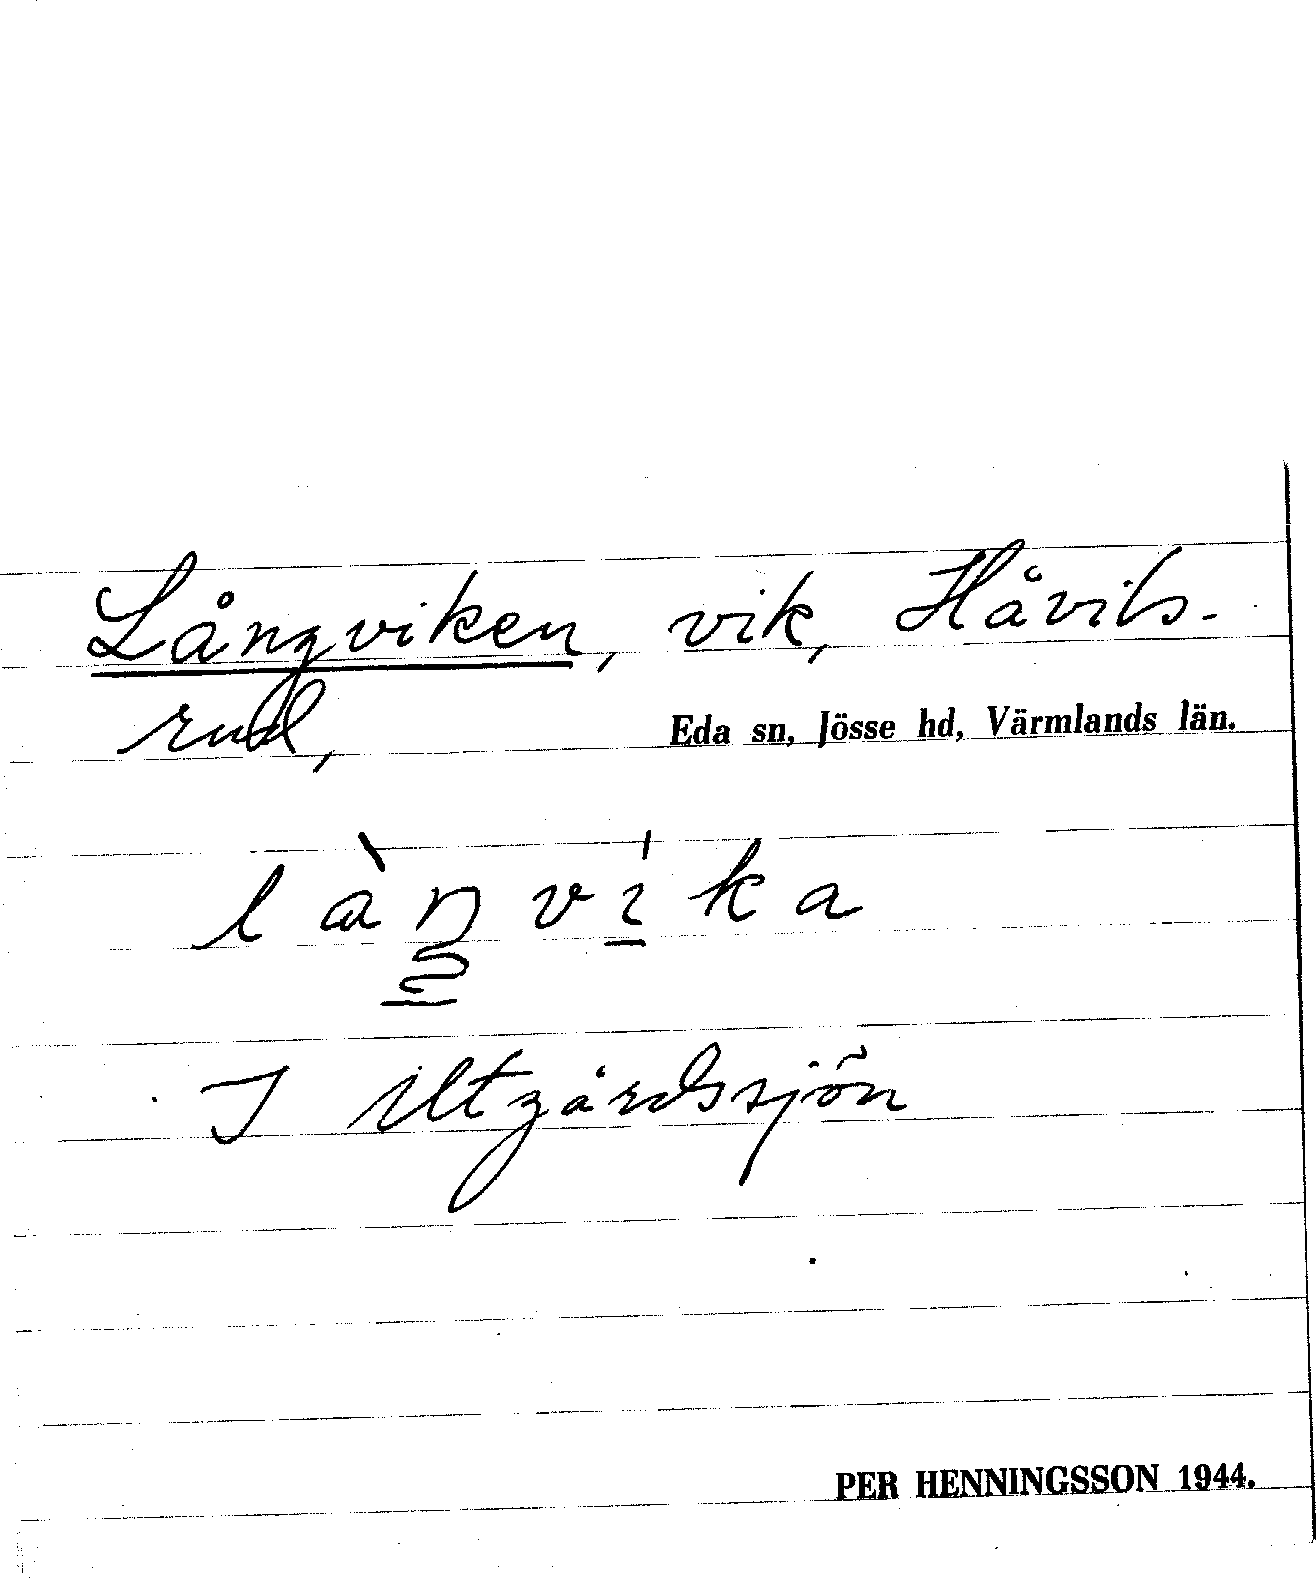 Långviken, vik, Håvils-
rud,
Eda sn, Jösse hd, Värmlands län.
I Utgårdssjön
PER HENNINGSSON 1944.